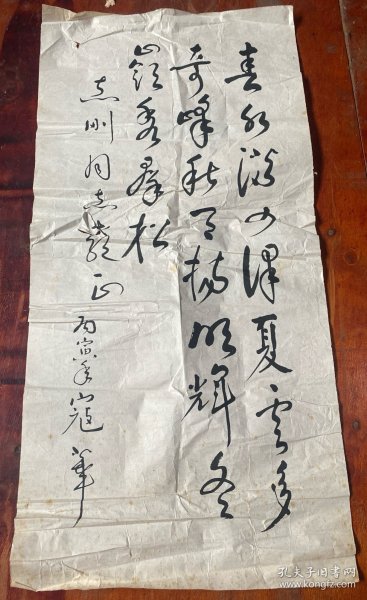 春水满四泽夏云多
奇峰秋月扬明辉冬
岭秀孤松
志刚同志正
丙寅年寇華
孔夫子旧书网
www.kongfz.com